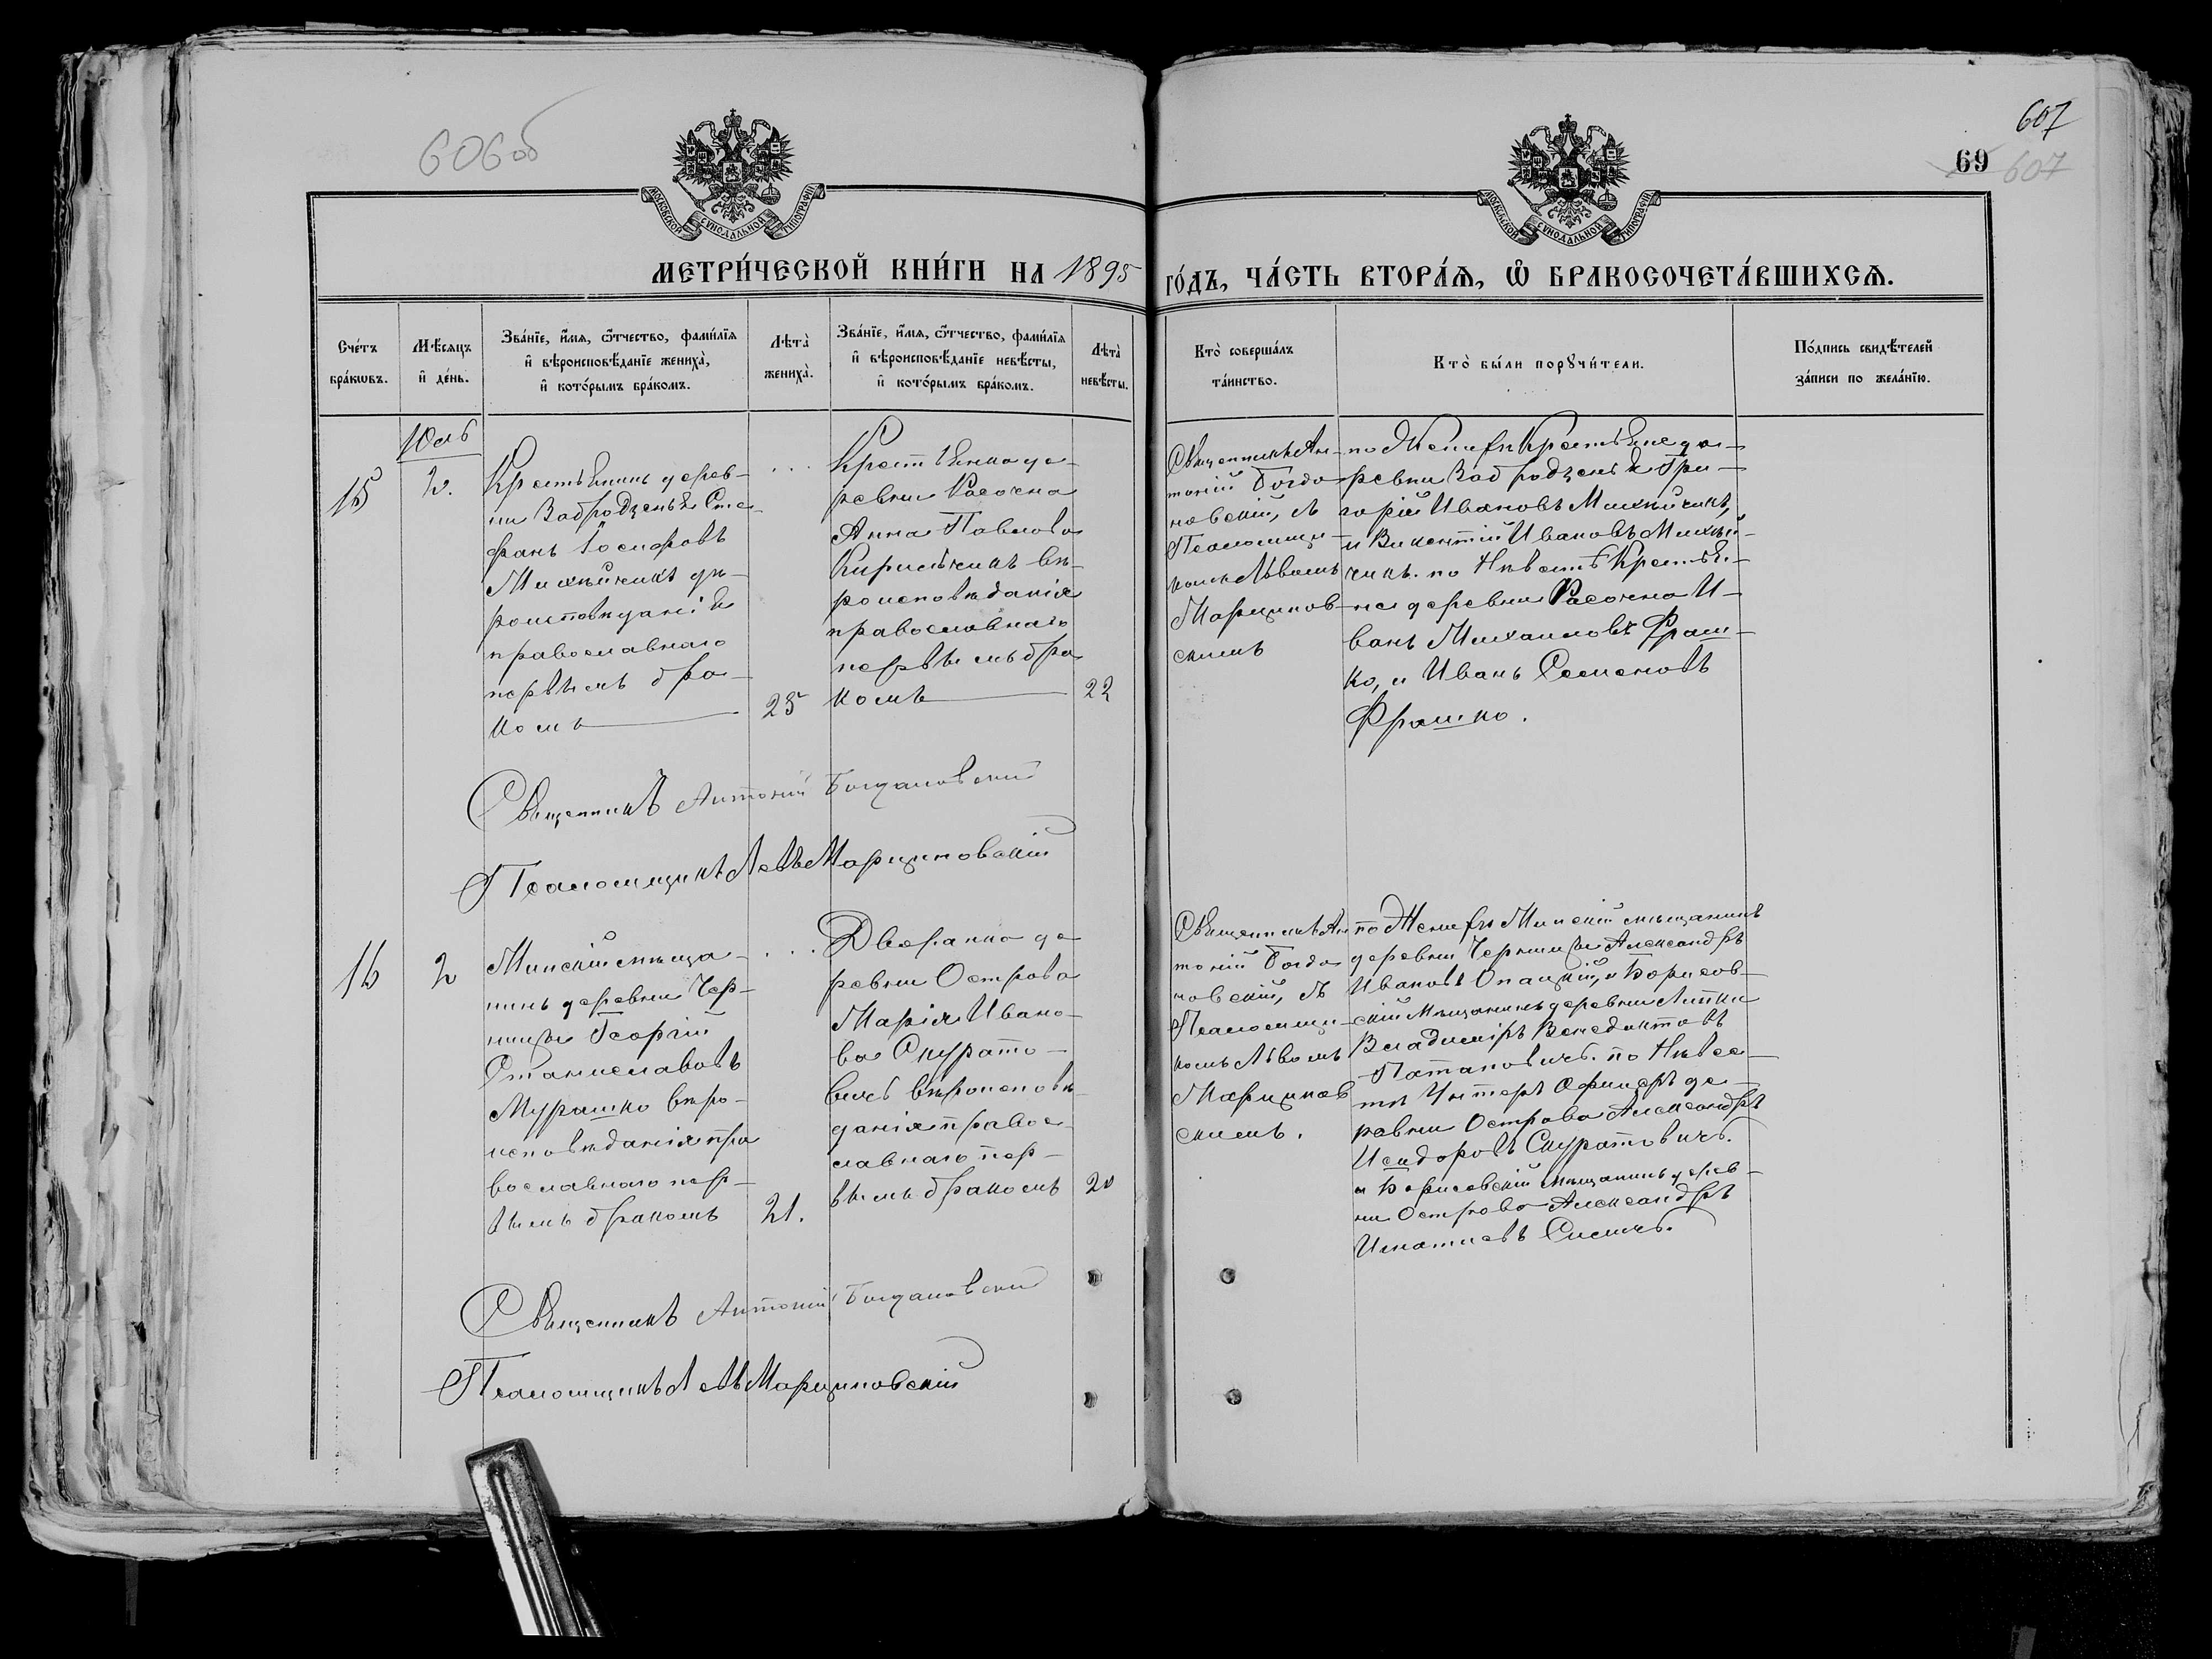 606 об
607
69 607
МОСКОВСКОЙ СѴНОДАЛЬНОЙ ТИПОГРАФІИ
МОСКОВСКОЙ СѴНОДАЛЬНОЙ ТИПОГРАФІИ
МЕТРИ́ЧЕСКОЙ КНИ́ГИ НА 1895 ГО́ДЪ, ЧА́СТЬ ВТОРА́Ѧ, Ѽ БРАКОСОЧЕТА́ВШИХСѦ.
Сче́тъ
бра́кѡвъ.
Мѣ́сѧцъ
и҆ де́нь.
Зва́нїе, и҆́мѧ, ѻ҆́тчество, фами́лїѧ
и҆ вѣроисповѣ́данїе жениха̀,
и҆ кото́рымъ бра́комъ.
Лѣта̀
жениха̀.
Зва́нїе, и҆́мѧ, ѻ҆́тчество, фами́лїѧ
и҆ вѣроисповѣ́данїе невѣ́сты,
и҆ кото́рымъ бра́комъ.
Лѣта̀
невѣ́сты.
Кто̀ соверша́лъ
та́инство.
Кто̀ бы́ли порꙋчи́тели.
По́дпись свидѣ́телей
за́писи по жела́нїю.
Юль
15
2.
Крестьянинъ дерев-
ни Забродзенья Сте-
фанъ Іосифовъ
Михнійчикъ вѣ-
роисповѣданія
православнаго
первымъ бра-
комъ
25
Крестьянка де-
ревни Расочна
Анна Павлова
Кирильчикъ вѣ-
роисповѣданія
православнаго
первымъ бра
комъ
22
Священникъ Ан-
тоній Богда
новскій, съ
Псаломщи-
комъ Львомъ
Марцинов-
скимъ
по Женихѣ Крестьяне де-
ревни Забродзенья Гри-
горій Ивановъ Михнійчикъ,
и Викентій Ивановъ Михній-
чикъ. по Невѣстѣ Крестья-
не деревни Расочна И-
ванъ Михаиловъ Фраш-
ко, и Иванъ Семеновъ
Фрашко.
Священникъ Антоній Богдановскій
Псаломщикъ Левъ Марциновскій
16
2
Минскій мѣща-
нинъ деревни Чер-
ницы Георгій
Станиславовъ
Мурашко вѣро-
исповѣданія пра
вославнаго пер-
вымъ бракомъ
21.
Дворянка де
ревни Острова
Марія Ивано-
ва Скурато-
вичъ вѣроисповѣ-
данія правос-
лавнаго пер-
вымъ бракомъ
20
Священникъ Ан
тоній Богда
новскій, съ
Псаломщи-
комъ Львомъ
Марцинов
скимъ.
по Женихѣ Минскій мѣщанинъ
деревни Черницы Александръ
Ивановъ Опацкій, и Борисов-
скій Мѣщанинъ деревни Литки
Владиміръ Венедиктовъ
Патаповичъ. по Невѣс-
тѣ Унтеръ Офицеръ де-
ревни Острова Александръ
Исидоровъ Скуратовичъ.
и Борисовскій мѣщанинъ дерев-
ни Острова Александръ
Игнатіевъ Сисичъ.
Священникъ Антоній Богдановскій
Псаломщикъ Левъ Марциновскій